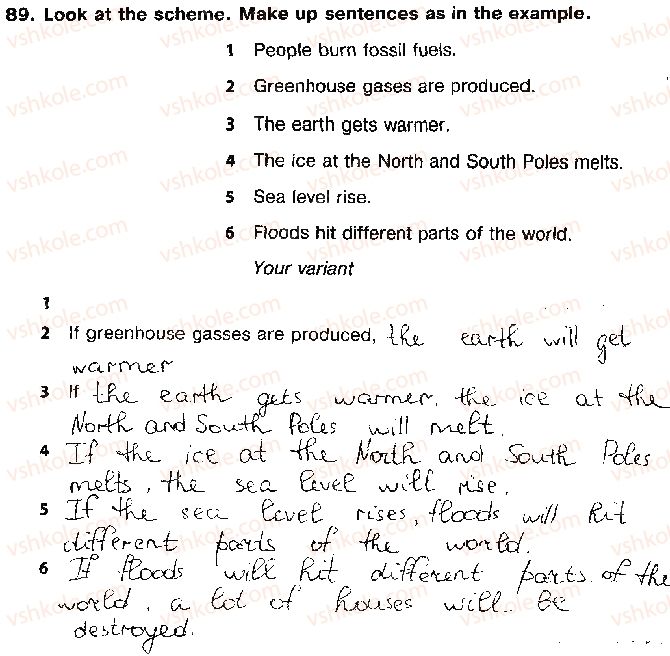 89. Look at the scheme. Make up sentences as in the example.
1 People burn fossil fuels.
2 Greenhouse gases are produced.
3 The earth gets warmer.
4 The ice at the North and South Poles melts.
5 Sea level rise.
6 Floods hit different parts of the world.
Your variant
1
2 If greenhouse gasses are produced, the earth will get
warmer
3 If the earth gets warmer, the ice at the
North and South Poles will melt.
4 If the ice at the North and South Poles
melts, the sea level will rise.
5 If the sea level rises, floods will hit
different parts of the world.
6 If floods will hit different parts of the
world, a lot of houses will be
destroyed.